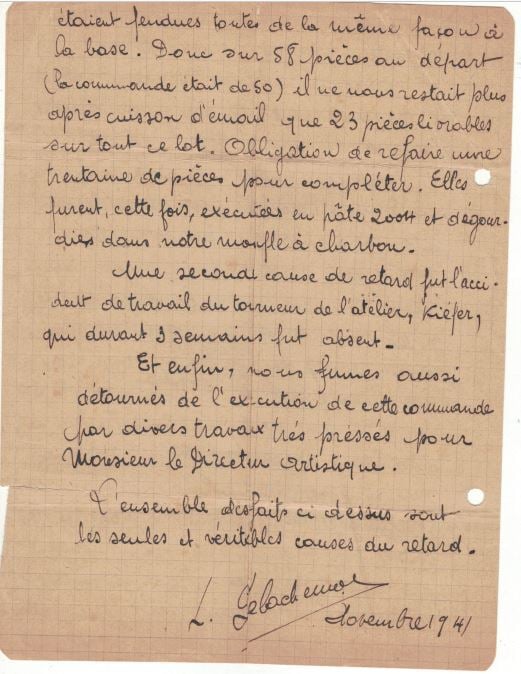 étaient fendues toutes de la même façon à
la base. Donc sur 58 pièces au départ
(la commande était de 50) il ne nous restait plus
après cuisson d'émail que 23 pièces livrables
sur tout ce lot. Obligation de refaire une
trentaine de pièces pour compléter. Elles
furent, cette fois, exécutées en pâte 2004 et dégour-
dies dans notre moufle à charbon.
Une seconde cause de retard fut l'acci-
dent de travail du tourneur de l'atelier, Kiéfer,
qui durant 3 semaines fut absent.
Et enfin, nous fumes aussi
détournés de l'exécution de cette commande
par divers travaux trés pressés pour
Monsieur le Directeur Artistique.
L'ensemble des faits ci dessus sont
les seules et véritables causes du retard.
L.
Novembre 1941